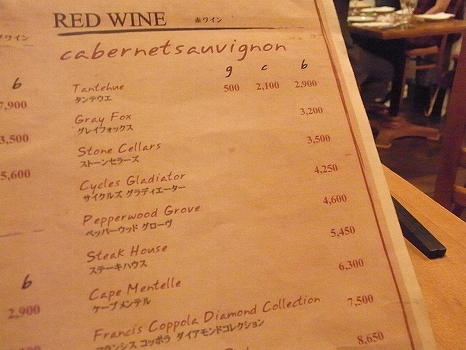 RED WINE 赤ワイン
ワイン
cabernetsauvignon
b
g c b
Tantehue 500 2,100 2,900
タンテウエ
7,900
Gray Fox 3,200
グレイフォックス
3,500
Stone Cellars 3,500
ストーンセラーズ
5,600
Cycles Gladiator 4,250
サイクルズ グラディエーター
Pepperwood Grove 4,600
ペッパーウッド グローヴ
Steak House 5,450
ステーキハウス
b
Cape Mentelle 6,300
ケープメンテル
2,900
Francis Coppola Diamond Collection 7,500
フランシス コッポラ ダイアモンドコレクション
8,650